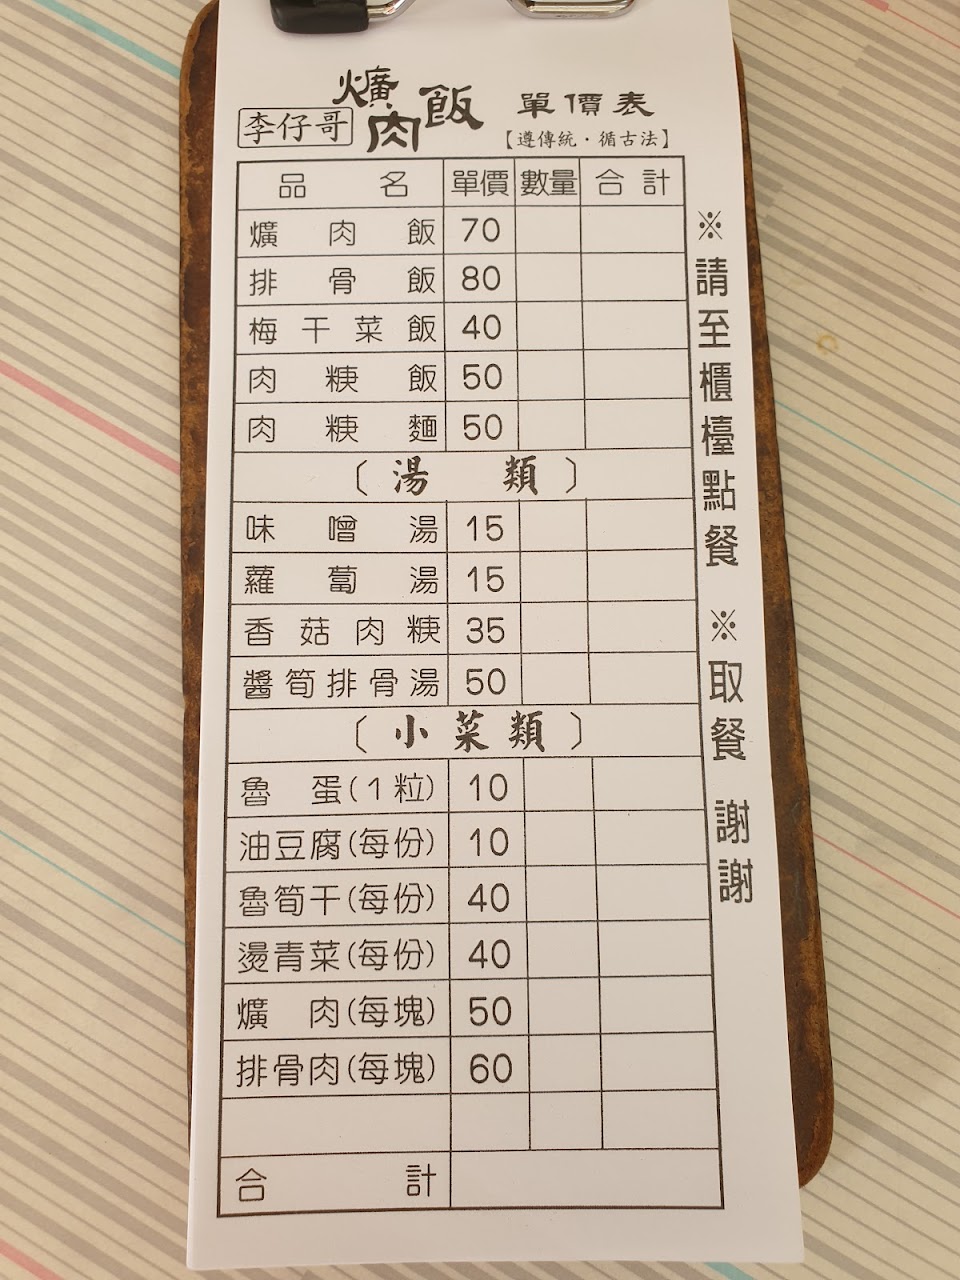 李仔哥 爌肉飯 單價表
【遵傳統・循古法】
品名 單價 數量 合計
爌肉飯 70
排骨飯 80
梅干菜飯 40
肉焿飯 50
肉焿麵 50
〔湯類〕
味噌湯 15
蘿蔔湯 15
香菇肉焿 35
醬筍排骨湯 50
〔小菜類〕
魯蛋(1粒) 10
油豆腐(每份) 10
魯筍干(每份) 40
燙青菜(每份) 40
爌肉(每塊) 50
排骨肉(每塊) 60
合計
※請至櫃檯點餐 ※取餐 謝謝